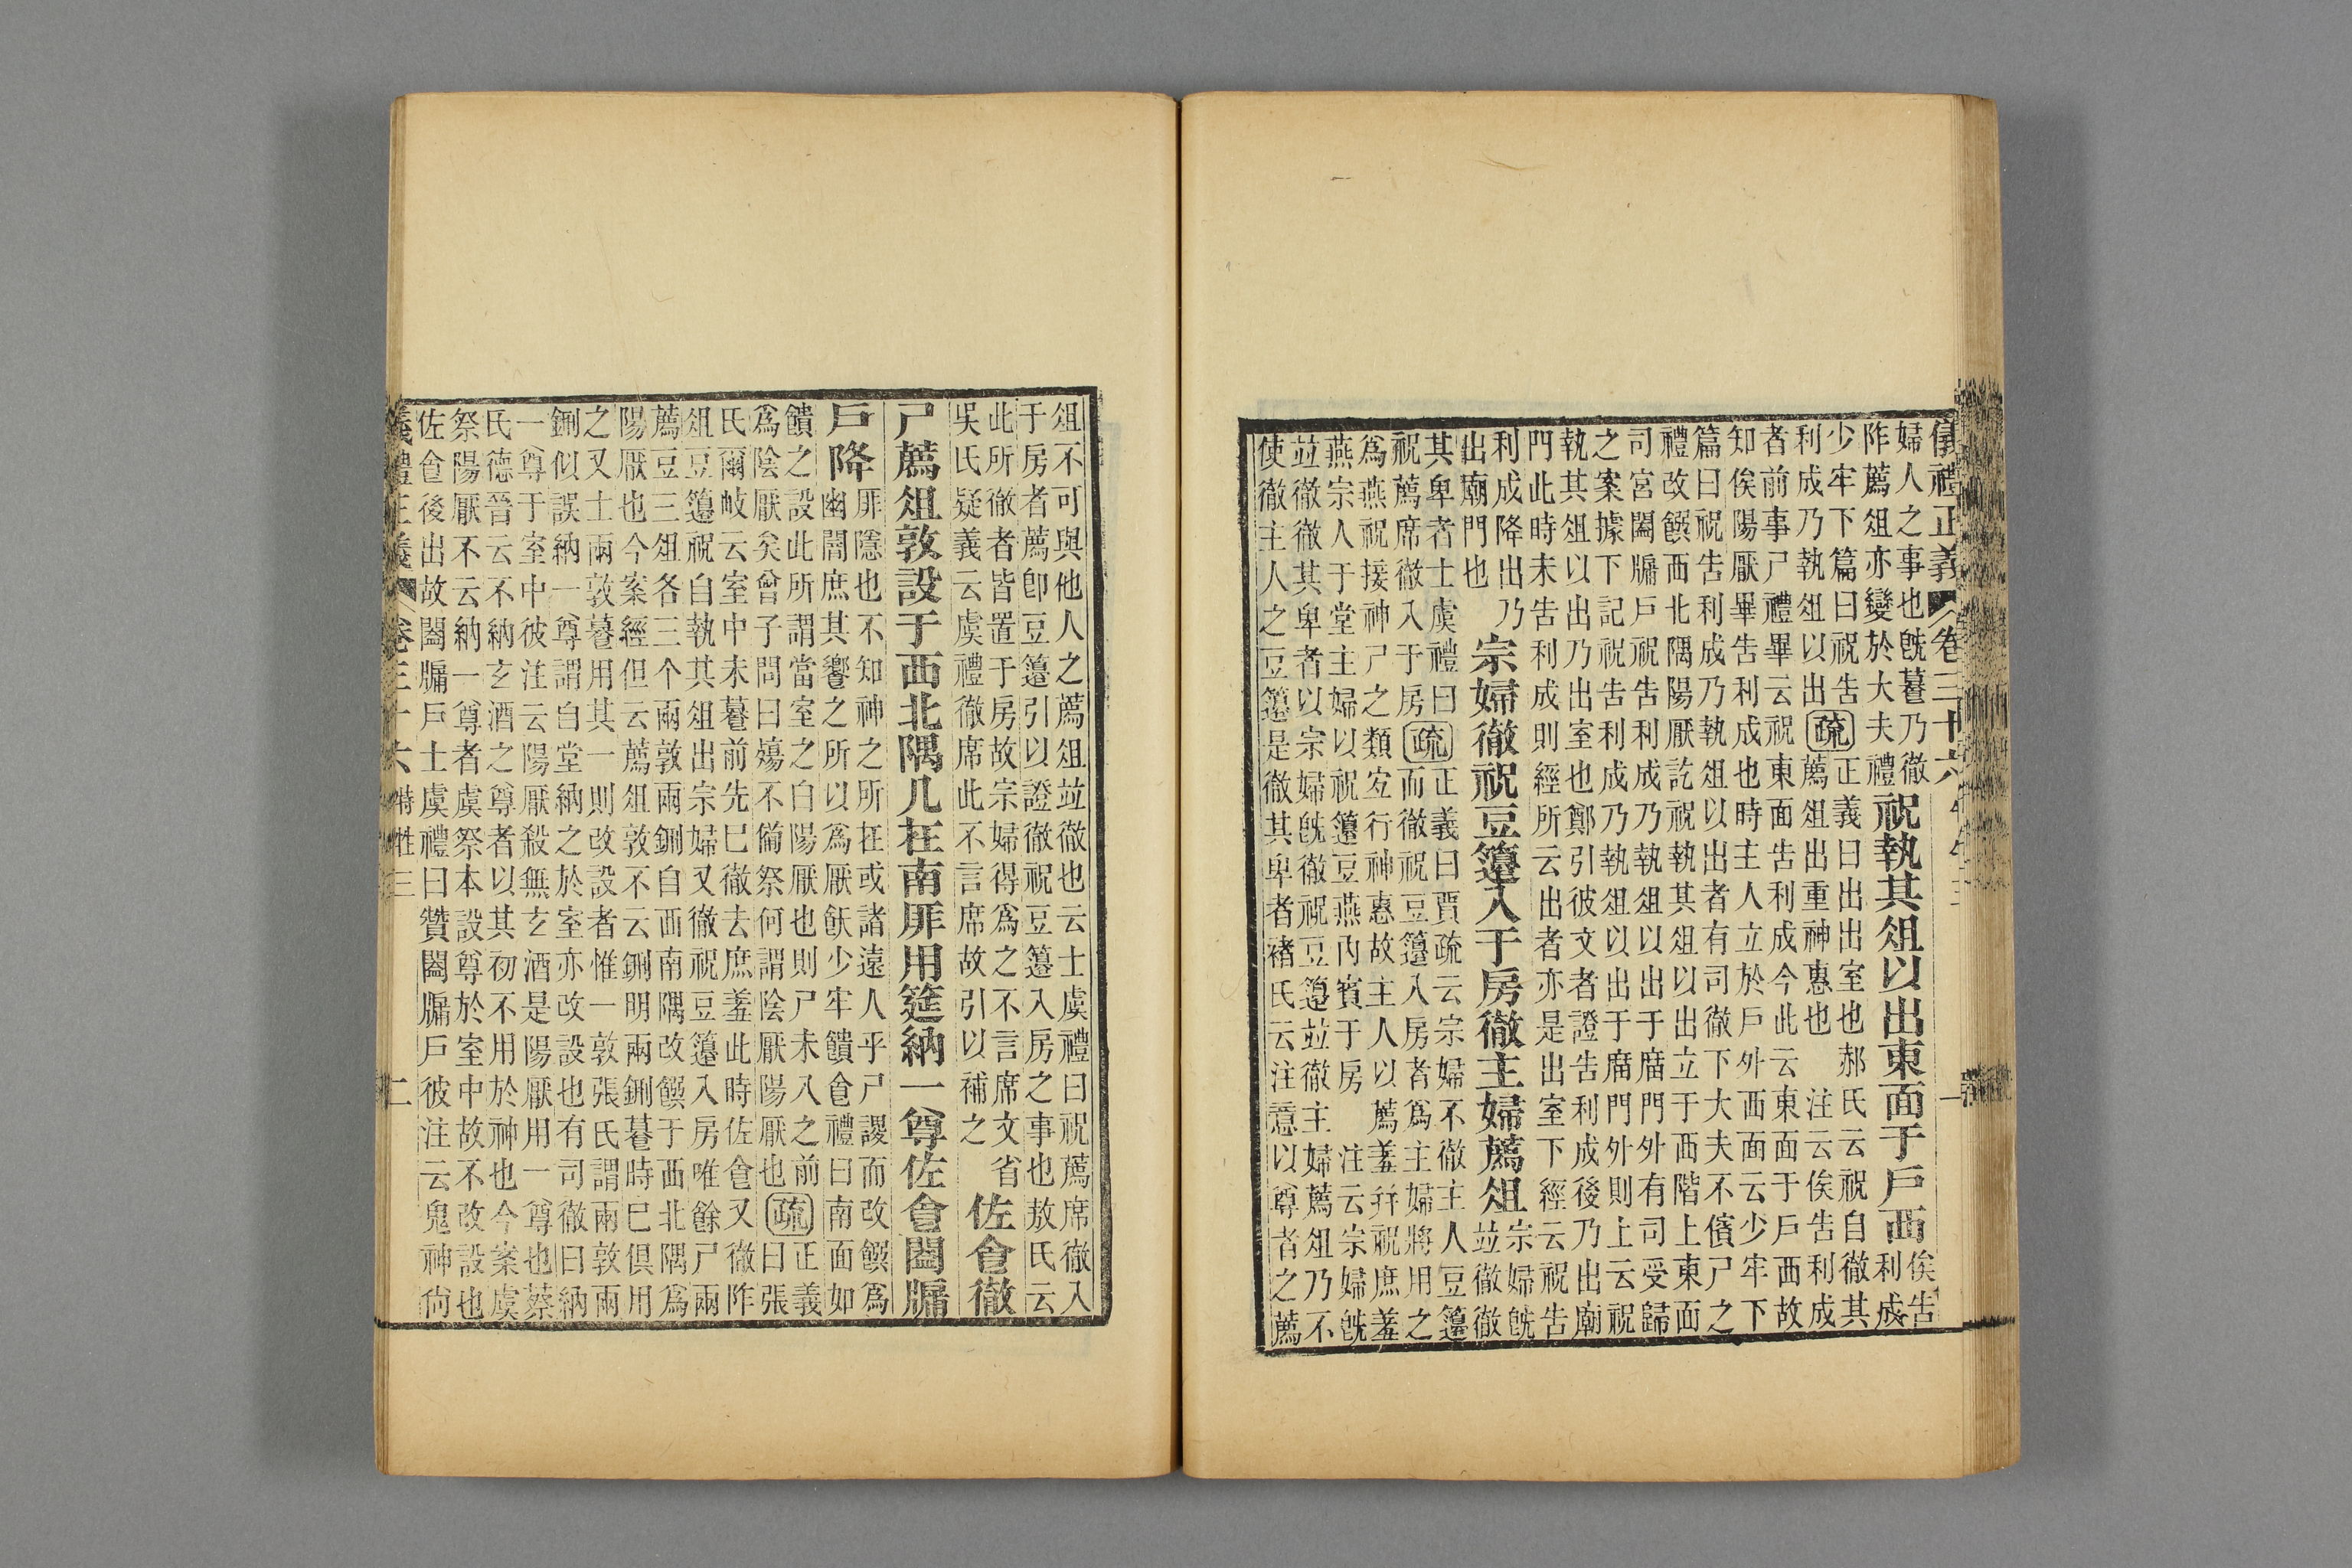 儀禮正義 卷三十六 特牲三 一
婦人之事也旣籑乃徹
阼薦俎亦變於大夫禮
祝執其俎以出東面于戶西
俟告
利成
少牢下篇曰祝告
利成乃執俎以出
疏
正義曰出出室也郝氏云祝自徹其
薦俎出重神惠也 注云俟告利成
者前事尸禮畢云祝東面告利成今此云東面于戶西故
知俟陽厭畢告利成也時主人立於戶外西面云少牢下
篇曰祝告利成乃執俎以出者有司徹下大夫不儐尸之
禮改饌西北隅陽厭訖祝執其俎以出立于西階上東面
司宮闔牖戶祝告利成乃執俎以出于廟門外有司受歸
之案據下記祝告利成乃執俎以出于廟門外則上云祝
執其俎以出乃出室也鄭引彼文者證告利成後乃出廟
門此時未告利成則經所云出者亦是出室下經云祝告
利成降出乃
出廟門也
宗婦徹祝豆籩入于房徹主婦薦俎
宗婦旣
竝徹徹
其卑者士虞禮曰
祝薦席徹入于房
疏
正義曰賈疏云宗婦不徹主人豆籩
而徹祝豆籩入房者爲主婦將用之
爲燕祝接神尸之類宐行神惠故主人以薦羞幷祝庶羞
燕宗人于堂主婦以祝籩豆燕内賓于房 注云宗婦旣
竝徹徹其卑者以宗婦旣徹祝豆籩竝徹主婦薦俎乃不
使徹主人之豆籩是徹其卑者褚氏云注意以尊者之薦
俎不可與他人之薦俎竝徹也云士虞禮曰祝薦席徹入
于房者薦卽豆籩引以證徹祝豆籩入房之事也敖氏云
此所徹者皆置于房故宗婦得爲之不言席文省
吳氏疑義云虞禮徹席此不言席故引以補之
佐㑹徹
尸薦俎敦設于西北隅几在南厞用筵納一尊佐㑹闔牖
戶降
厞隱也不知神之所在或諸遠人乎尸謖而改饌爲
幽闇庶其饗之所以爲厭飫少牢饋㑹禮曰南面如
饋之設此所謂當室之白陽厭也則尸未入之前
爲陰厭矣曾子問曰殤不僃祭何謂陰厭陽厭也
疏
正義
曰張
氏爾岐云室中未籑前先已徹去庶羞此時佐㑹又徹阼
俎豆籩祝自執其俎出宗婦又徹祝豆籩入房唯餘尸兩
薦豆三俎各三个兩敦兩鉶自西南隅改饌于西北隅爲
陽厭也今案經但云薦俎敦不云鉶明兩鉶籑時已俱用
之又士兩敦籑用其一則改設者惟一敦張氏謂兩敦兩
鉶似誤納一尊謂自堂納之於室亦改設也有司徹曰納
一尊于室中彼注云陽厭殺無玄酒是陽厭用一尊也蔡
氏德晉云不納玄酒之尊者以其初不用於神也今案虞
祭陽厭不云納一尊者虞祭本設尊於室中故不改設也
佐㑹後出故闔牖戶士虞禮曰贊闔牖戶彼注云鬼神尙
儀禮正義 卷三十六 特牲三 二